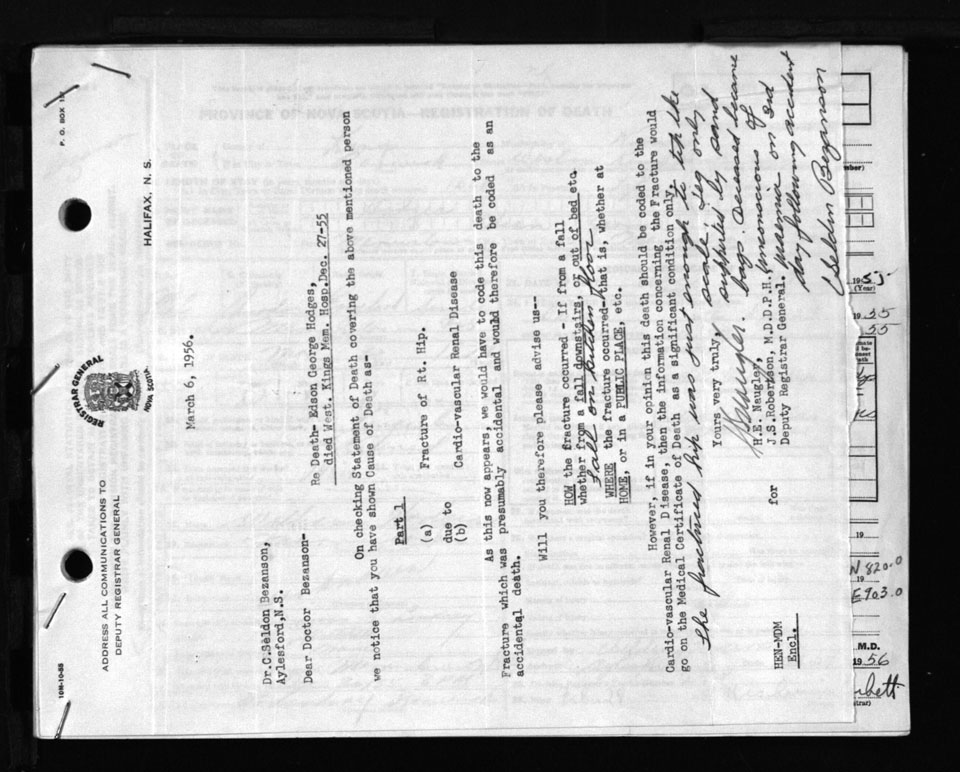 10M-10-55
ADDRESS ALL COMMUNICATIONS TO
DEPUTY REGISTRAR GENERAL
REGISTRAR GENERAL
NOVA SCOTIA
P. O. BOX
HALIFAX, N. S.
March 6, 1956.
Dr.C.Seldon Bezanson,
Aylesford,N.S.
Re Death- Edson George Hodges,
died West. Kings Mem. Hosp.Dec. 27-55
Dear Doctor Bezanson-
On checking Statement of Death covering the above mentioned person
we notice that you have shown Cause of Death as-
Part 1
(a) Fracture of Rt. Hip.
due to
(b) Cardio-vascular Renal Disease
As this now appears, we would have to code this death to the
Fracture which was presumably accidental and would therefore be coded as an
accidental death.
Will you therefore please advise us--
HOW the fracture occurred - If from a fall
whether from a fall downstairs, or out of bed etc.
Fall on kitchen floor
WHERE the fracture occurred- that is, whether at
HOME, or in PUBLIC PLACE, etc.
However, if in your opinion this death should be coded to the
Cardio-vascular Renal Disease, then the information concerning the Fracture would
go on the Medical Certificate of Death as a significant condition only.
The fractured hip was just enough to tip the
scale; leg only
supported by sand
bags. Deceased became
unconscious of
uraemia on 2nd
day following accident
Seldon Bezanson
Yours very truly,
H.E. Naugler,
for J.S.Robertson, M.D.D.P.H.
Deputy Registrar General.
HEN-MDM
Encl.
PROVINCE OF NOVA SCOTIA—REGISTRATION OF DEATH
1955
(Year)
1955
55
19
N 820.0
19
E 903.0
M.D.
1956